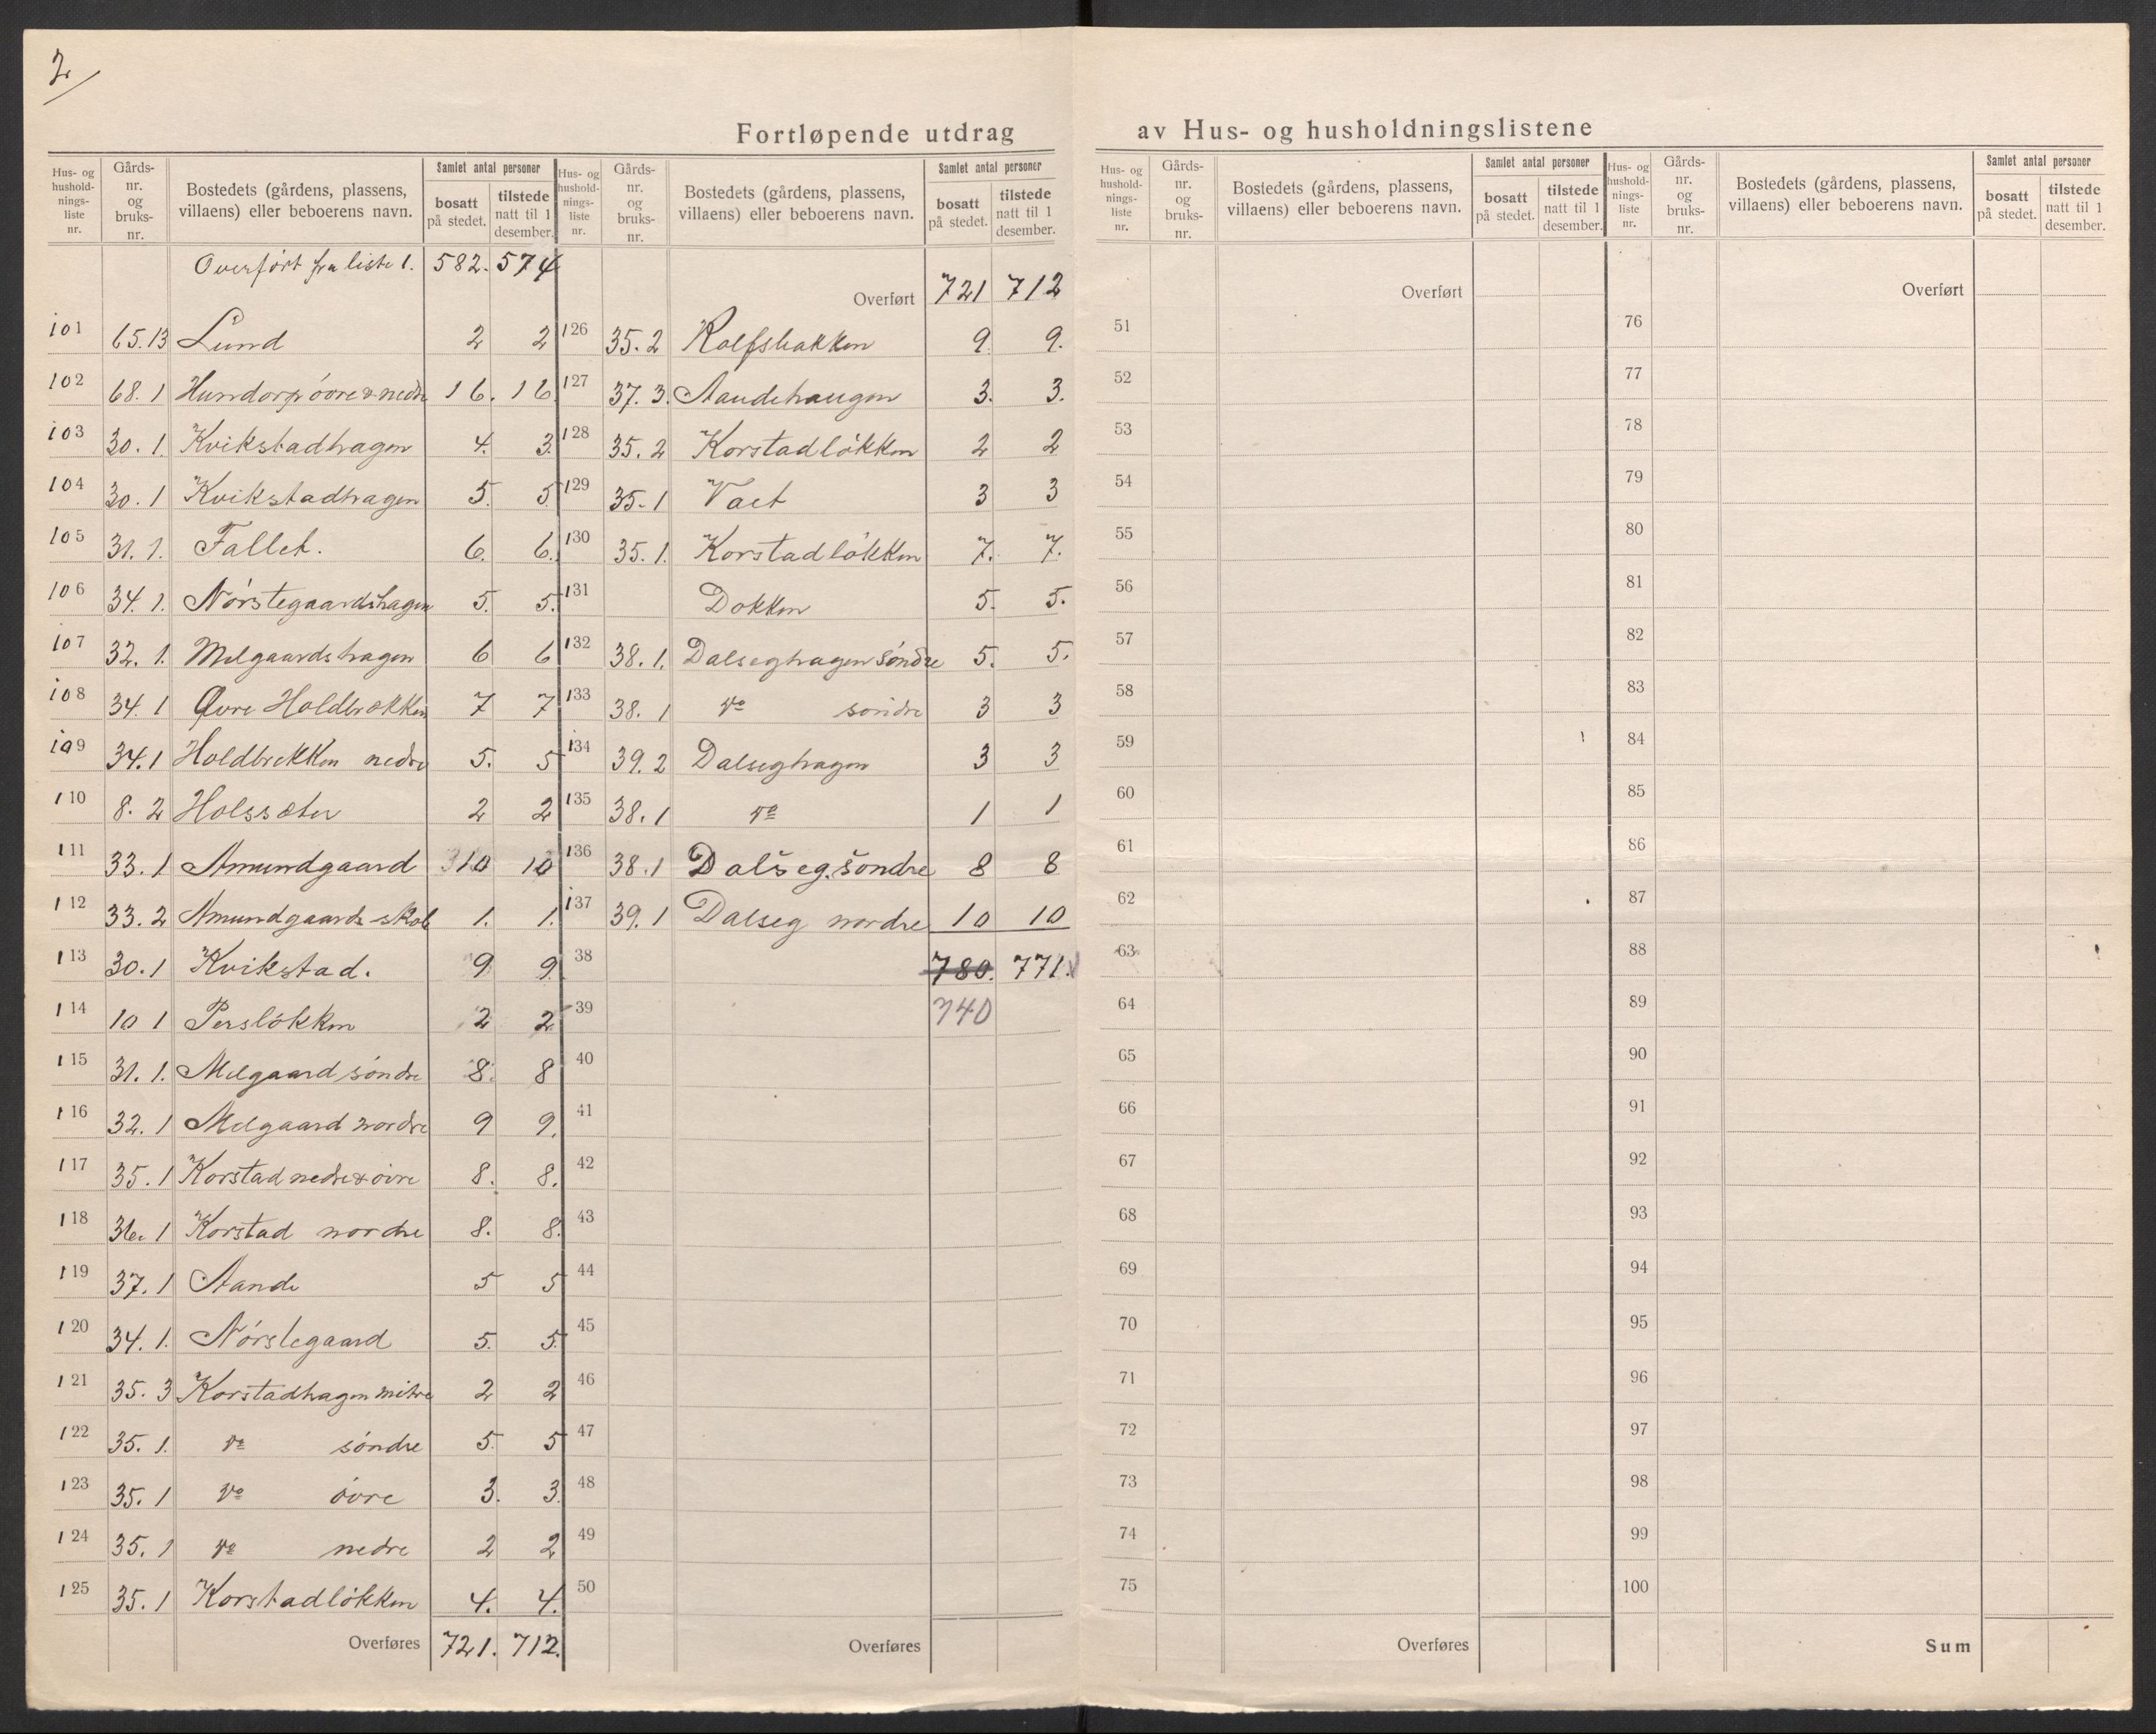 2
Fortløpende utdrag av Hus- og husholdningslistene
Hus- og hushold- nings- liste nr. Gårds- nr. og bruks- nr. Bostedets (gårdens, plassens, villaens) eller beboerens navn. Samlet antal personer bosatt på stedet. tilstede natt til 1 desember.
Overført fra liste 1. 582. 574
101 65.13 Lund 2 2
102 68.1 Hundorp óvre & nedre 16. 16
103 30.1. Kvikstadhagen 4. 3.
104 30.1 Kvikstadhagen 5. 5
105 31.1. Fallet. 6. 6.
106 34.1. Nórstegaardshagen 5. 5.
107 32.1. Melgaardshagen 6 6
108 34.1 Øvre Holdbrekken 7 7
109 34.1 Holdbrekken nedre 5. 5
110 8.2 Holssæter 2 2
111 33.1 Amundgaard 10 10
112 33.2 Amundgaards skole 1. 1.
113 30.1 Kvikstad. 9 9.
114 10 1 Perslókken 2 2
115 31.1. Melgaard sóndre 8. 8
116 32.1 Melgaard nordre 9 9.
117 35.1 Korstad nedre & óvre 8. 8.
118 36.1 Korstad nordre 8. 8.
119 37.1 Aande 5 5
120 34.1. Nórstegaard 5. 5.
121 35.3 Korstadhagen mitre 2 2
122 35.1. do sóndre 5. 5
123 35.1 do óvre 3. 3.
124 35.1 do nedre 2 2
125 35.1 Korstadlókken 4. 4.
Overføres 721. 712.
Hus- og hushold- nings- liste nr. Gårds- nr. og bruks- nr. Bostedets (gårdens, plassens, villaens) eller beboerens navn. Samlet antal personer bosatt på stedet. tilstede natt til 1 desember.
Overført 721 712
126 35.2 Rolfsbakken 9. 9.
127 37.3. Aandehaugen 3. 3.
128 35.2 Korstadlókken 2 2
129 35.1 Vaet 3 3
130 35.1. Korstadlókken 7. 7.
131 Dokken 5. 5.
132 38.1. Dalseghagen sóndre 5. 5.
133 38.1 do sóndre 3 3
134 39.2 Dalseghagen 3 3
135 38.1 do 1 1
136 38.1 Dalseg. sondre 8 8
137 39.1 Dalseg nordre 10 10
38 780. 771.
39 740
40
41
42
43
44
45
46
47
48
49
50
Overføres
Hus- og hushold- nings- liste nr. Gårds- nr. og bruks- nr. Bostedets (gårdens, plassens, villaens) eller beboerens navn. Samlet antal personer bosatt på stedet. tilstede natt til 1 desember.
Overført
51
52
53
54
55
56
57
58
59
60
61
62
63
64
65
66
67
68
69
70
71
72
73
74
75
Overføres
Hus- og hushold- nings- liste nr. Gårds- nr. og bruks- nr. Bostedets (gårdens, plassens, villaens) eller beboerens navn. Samlet antal personer bosatt på stedet. tilstede natt til 1 desember.
Overført
76
77
78
79
80
81
82
83
84
85
86
87
88
89
90
91
92
93
94
95
96
97
98
99
100
Sum